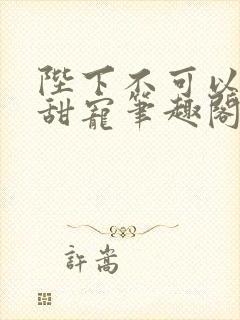 陛下不可以
甜寵筆趣閣
許嵩